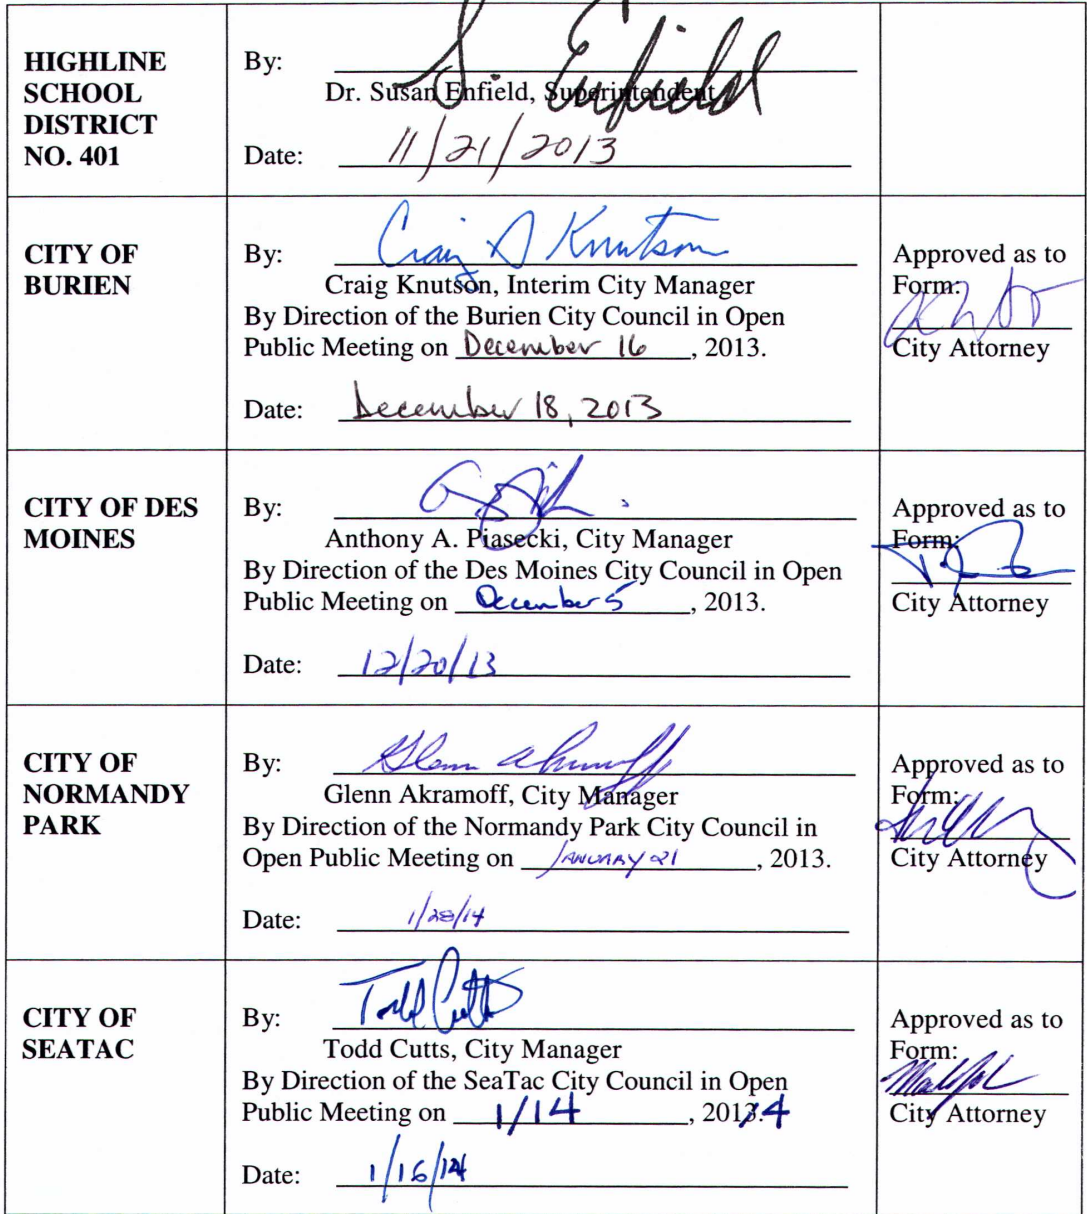 HIGHLINE
SCHOOL
DISTRICT
NO. 401
By: S. Enfield
Dr. Susan Enfield, Superintendent
Date: 11/21/2013
CITY OF
BURIEN
By: Craig D Knutson
Craig Knutson, Interim City Manager
By Direction of the Burien City Council in Open
Public Meeting on December 16, 2013.
Date: December 18, 2013
Approved as to
Form:
City Attorney
CITY OF DES
MOINES
By:
Anthony A. Piasecki, City Manager
By Direction of the Des Moines City Council in Open
Public Meeting on December 5, 2013.
Date: 12/20/13
Approved as to
Form:
City Attorney
CITY OF
NORMANDY
PARK
By: Glenn Akramoff
Glenn Akramoff, City Manager
By Direction of the Normandy Park City Council in
Open Public Meeting on JANUARY 21, 2013.
Date: 1/28/14
Approved as to
Form:
City Attorney
CITY OF
SEATAC
By: Todd Cutts
Todd Cutts, City Manager
By Direction of the SeaTac City Council in Open
Public Meeting on 1/14, 2013.4
Date: 1/16/14
Approved as to
Form:
City Attorney